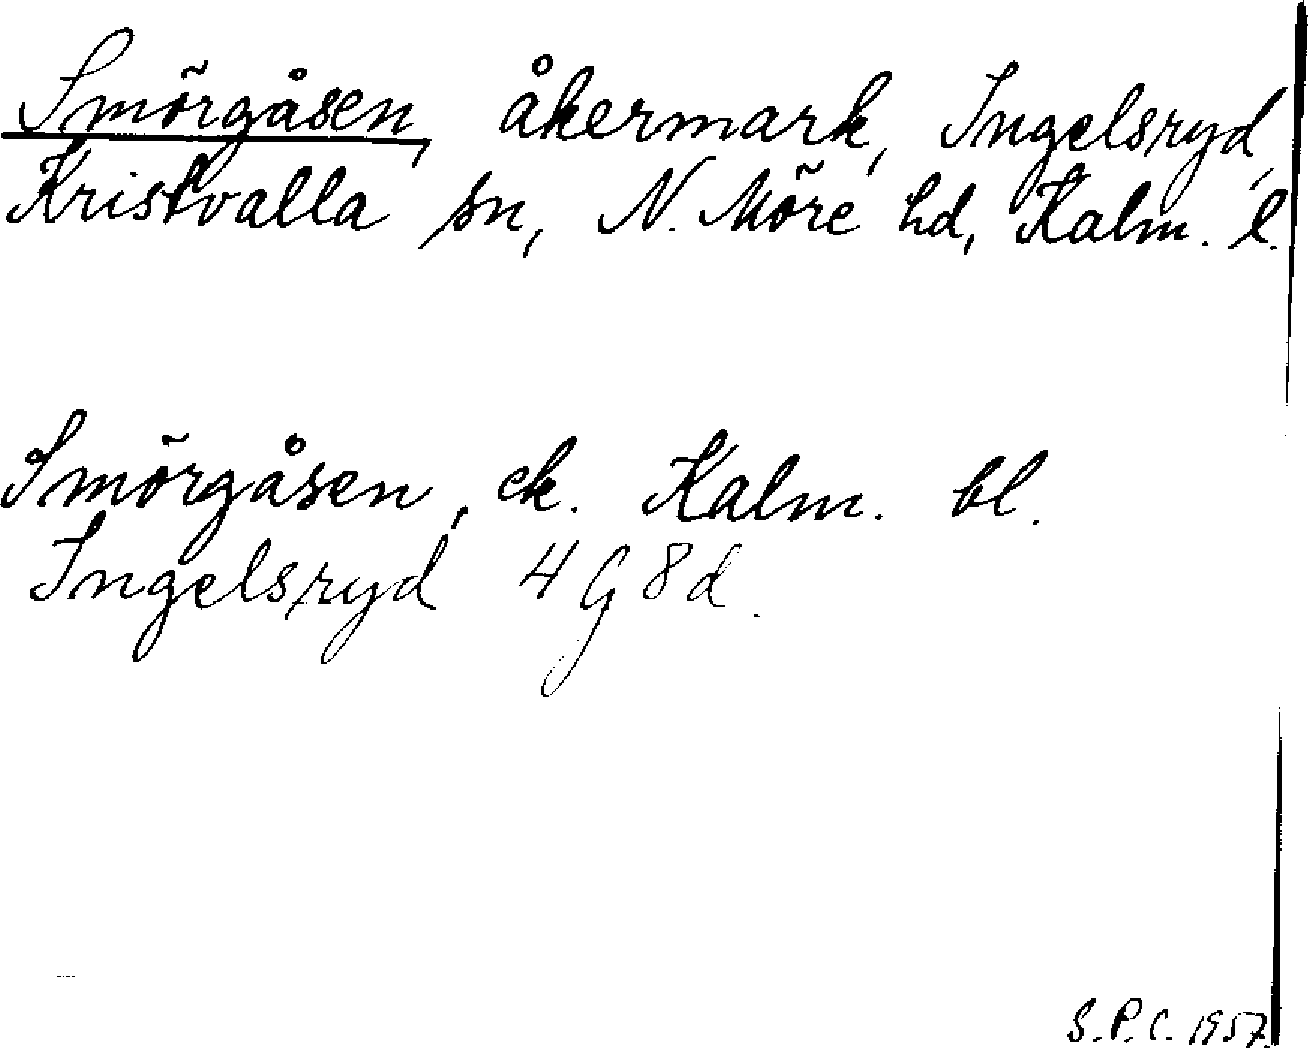 Smörgåsen, åkermark, Ingelsryd,
Kristvalla sn, N. Möre hd, Kalm. l.
Smörgåsen, ek. Kalm. bl.
Ingelsryd 4G8d.
S.P.C. 1957.